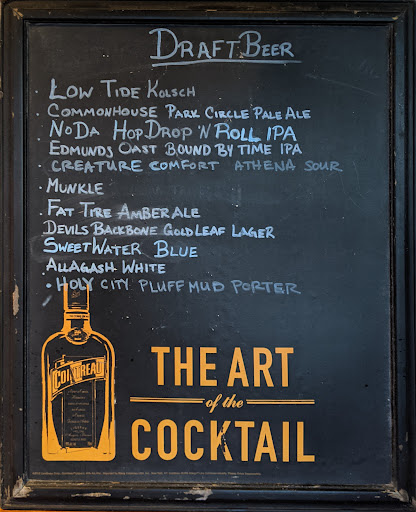 DRAFT BEER
LOW TIDE KOLSCH
COMMONHOUSE PARK CIRCLE PALE ALE
NODA HOP DROP 'N ROLL IPA
EDMUNDS OAST BOUND BY TIME IPA
CREATURE COMFORT ATHENA SOUR
MUNKLE
FAT TIRE AMBER ALE
DEVILS BACKBONE GOLD LEAF LAGER
SWEETWATER BLUE
ALLAGASH WHITE
HOLY CITY PLUFF MUD PORTER
COINTREAU
THE ART
of the
COCKTAIL